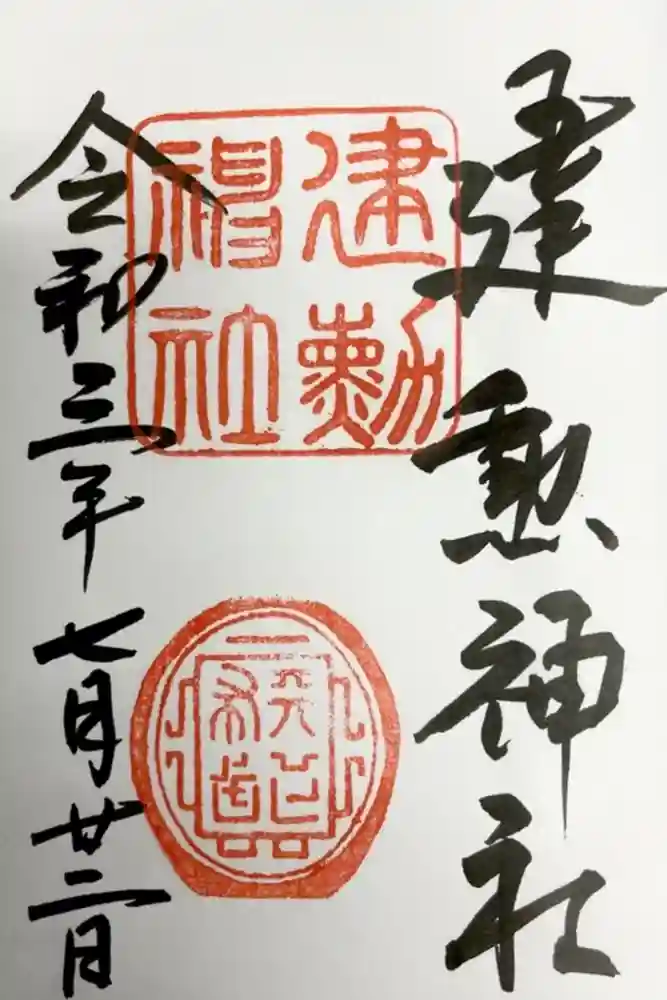 建勲神社
建勲
神社
令和三年七月廿二日